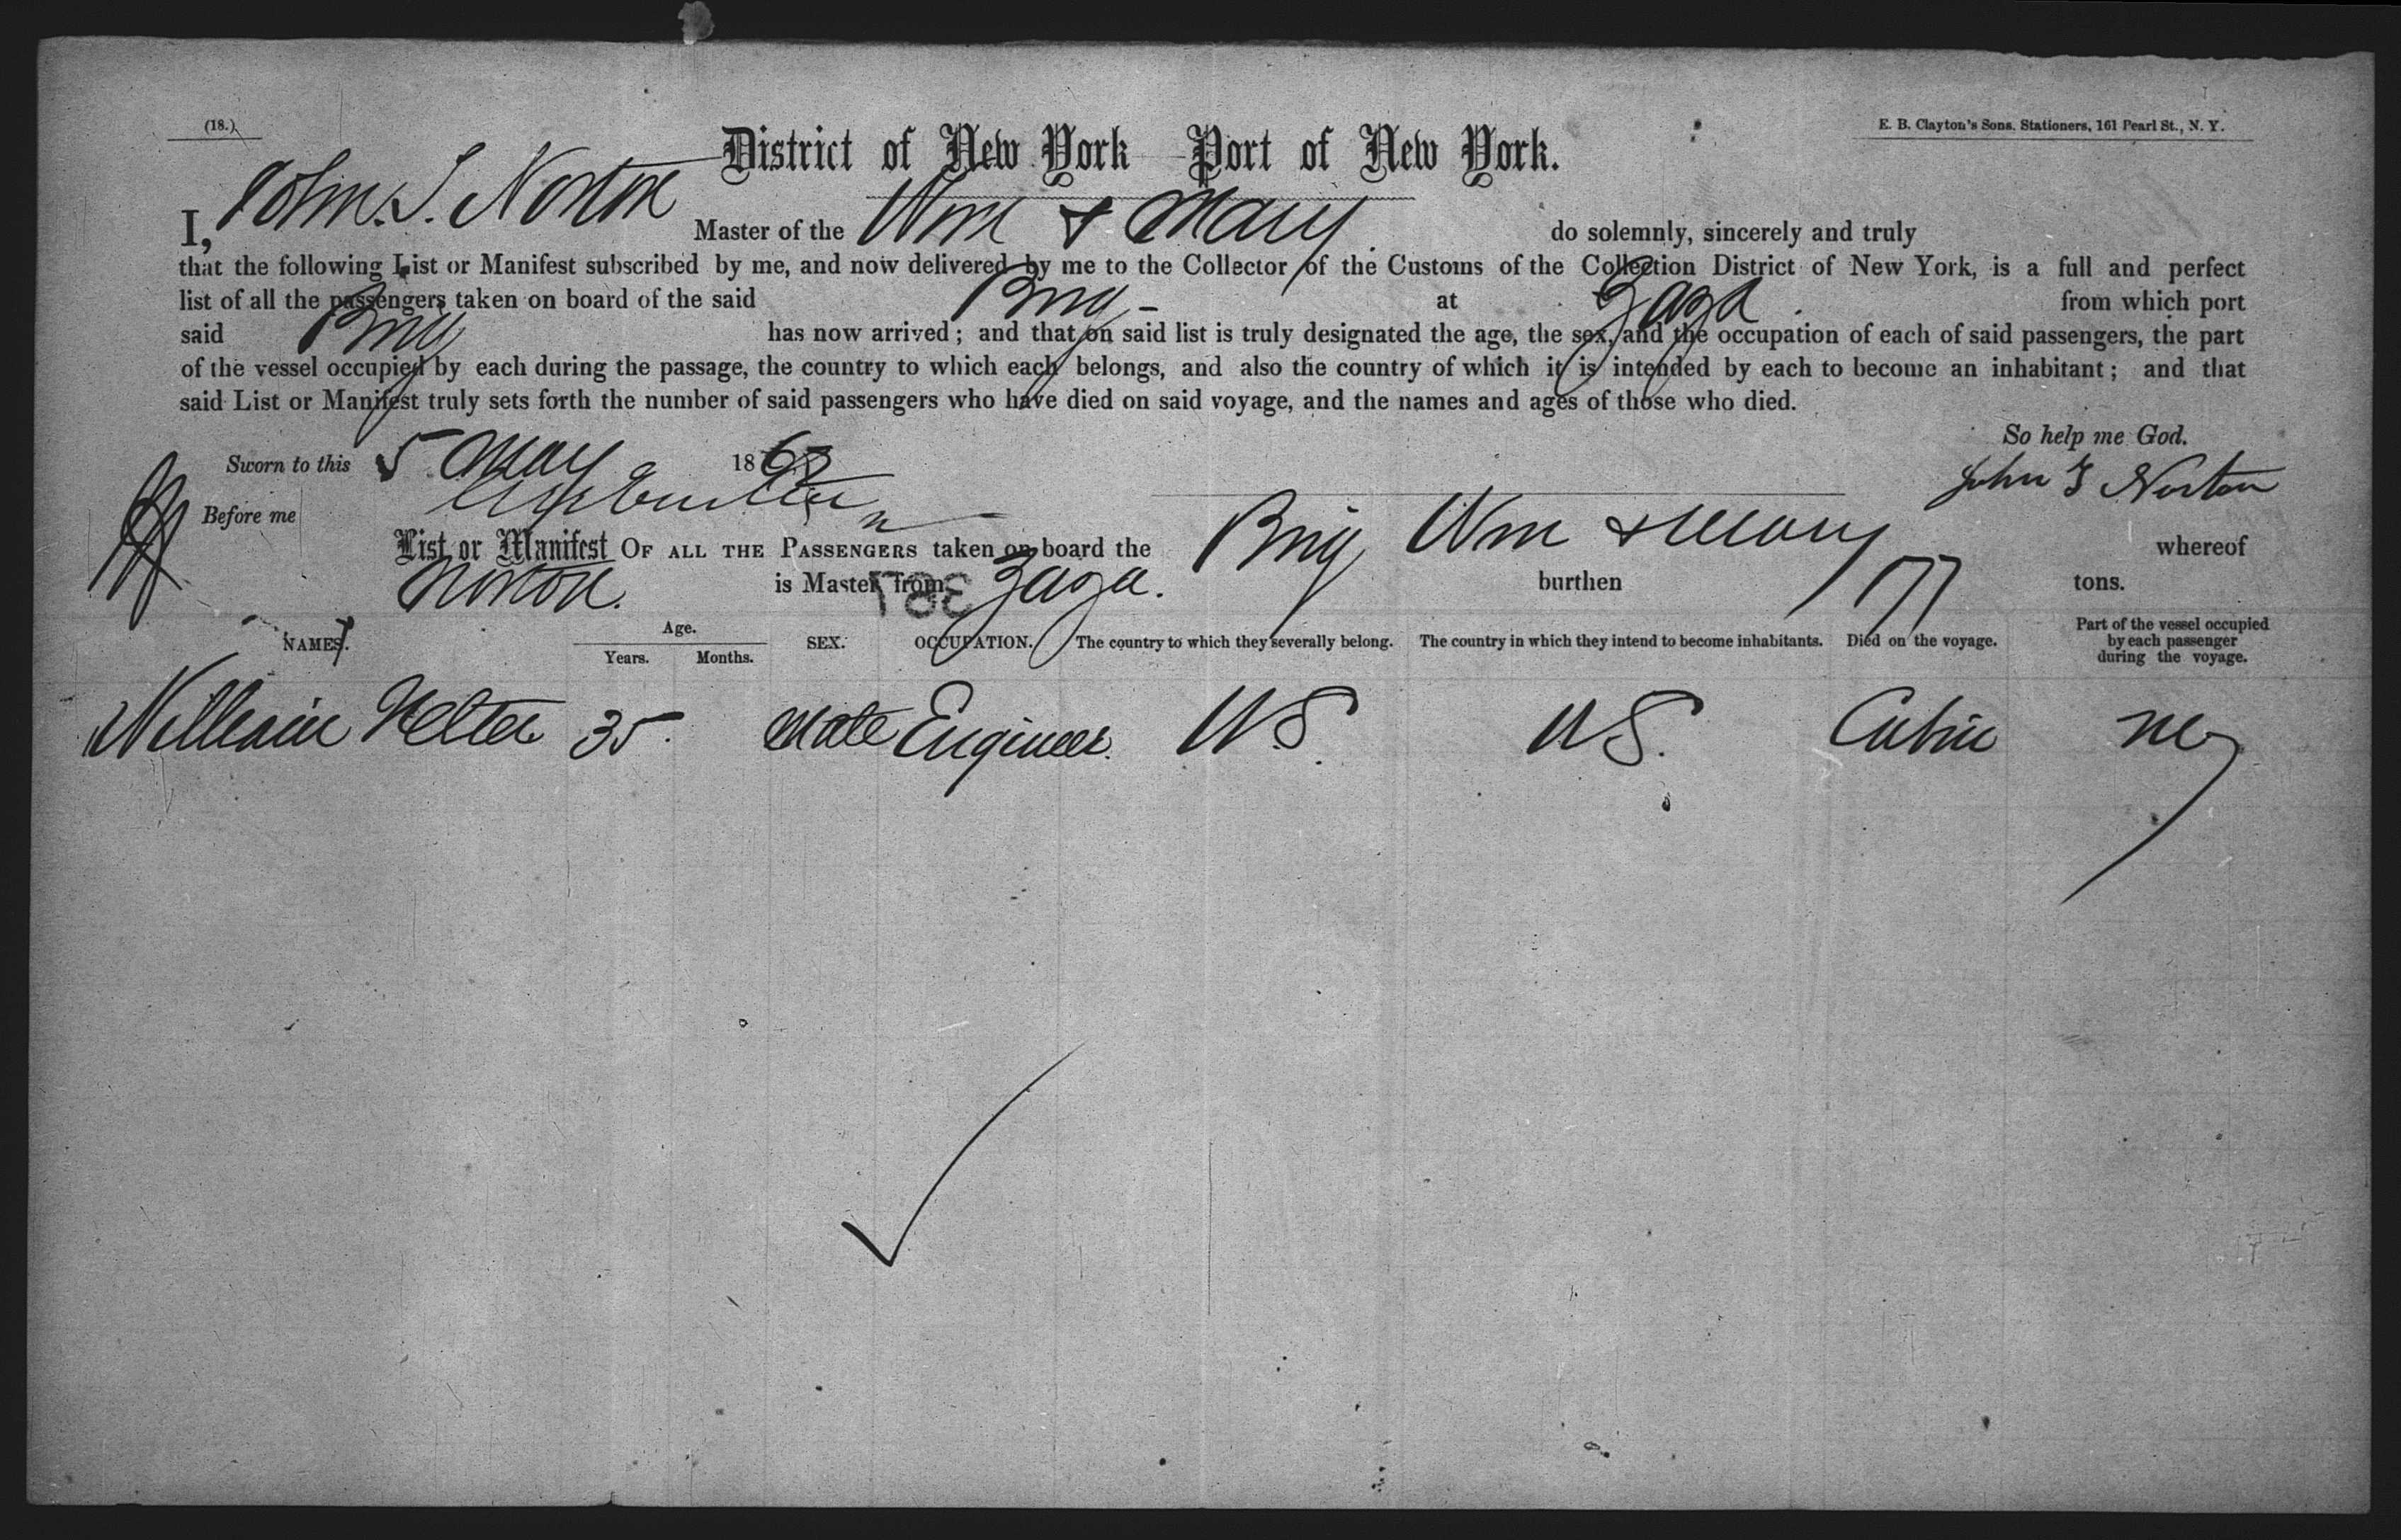 (18.)
E. B. Clayton's Sons. Stationers, 161 Pearl St., N. Y.
District of New York Port of New York.
I, John. S. Norton Master of the Wm & Mary do solemnly, sincerely and truly
that the following List or Manifest subscribed by me, and now delivered by me to the Collector of the Customs of the Collection District of New York, is a full and perfect
list of all the passengers taken on board of the said Brig - at Zaza. from which port
said Brig has now arrived; and that on said list is truly designated the age, the sex, and the occupation of each of said passengers, the part
of the vessel occupied by each during the passage, the country to which each belongs, and also the country of which it is intended by each to become an inhabitant; and that
said List or Manifest truly sets forth the number of said passengers who have died on said voyage, and the names and ages of those who died.
So help me God.
Sworn to this 5 May 1863
John S Norton
Before me
List or Manifest OF ALL THE PASSENGERS taken on board the Brig Wm & Mary whereof
Norton. is Master from Zaza. burthen 177 tons.
387
NAMES. Age. Years. Months. SEX. OCCUPATION. The country to which they severally belong. The country in which they intend to become inhabitants. Died on the voyage. Part of the vessel occupied by each passenger during the voyage.
William 35. Male Engineer. U.S. U.S. Cabin